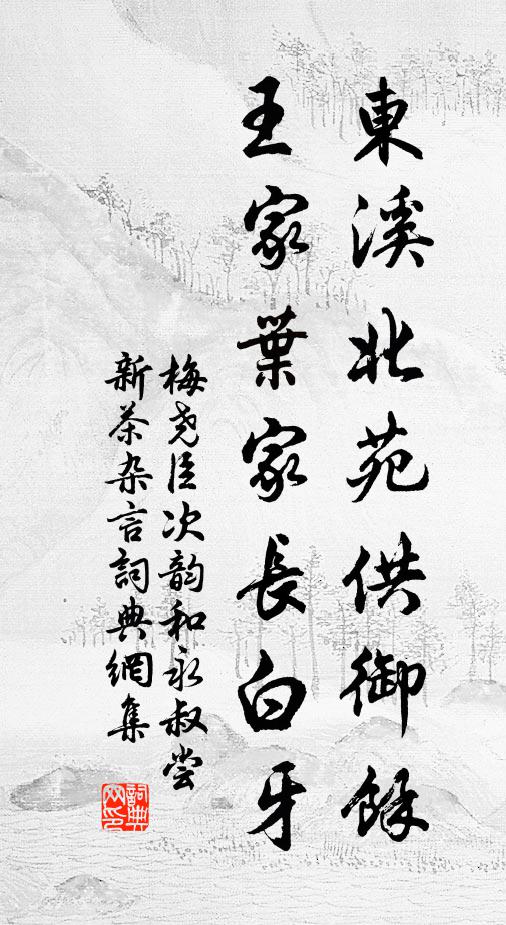 東溪北苑供御餘
王家葉家長白牙
梅尧臣次韵和永叔尝
新茶杂言詞典網集
詞典
网印